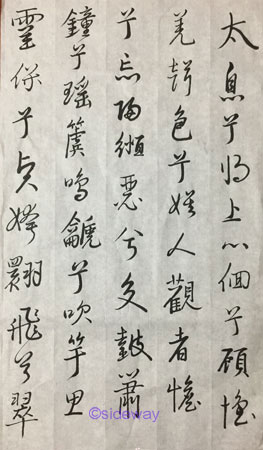 太息兮将上心佪兮顾懷
羌聲色兮娱人觀者憺
兮忘歸緪瑟兮交鼓簫
鐘兮瑶簴鳴䶵兮吹竽思
靈保兮贤姱翾飛兮翠
©sideway